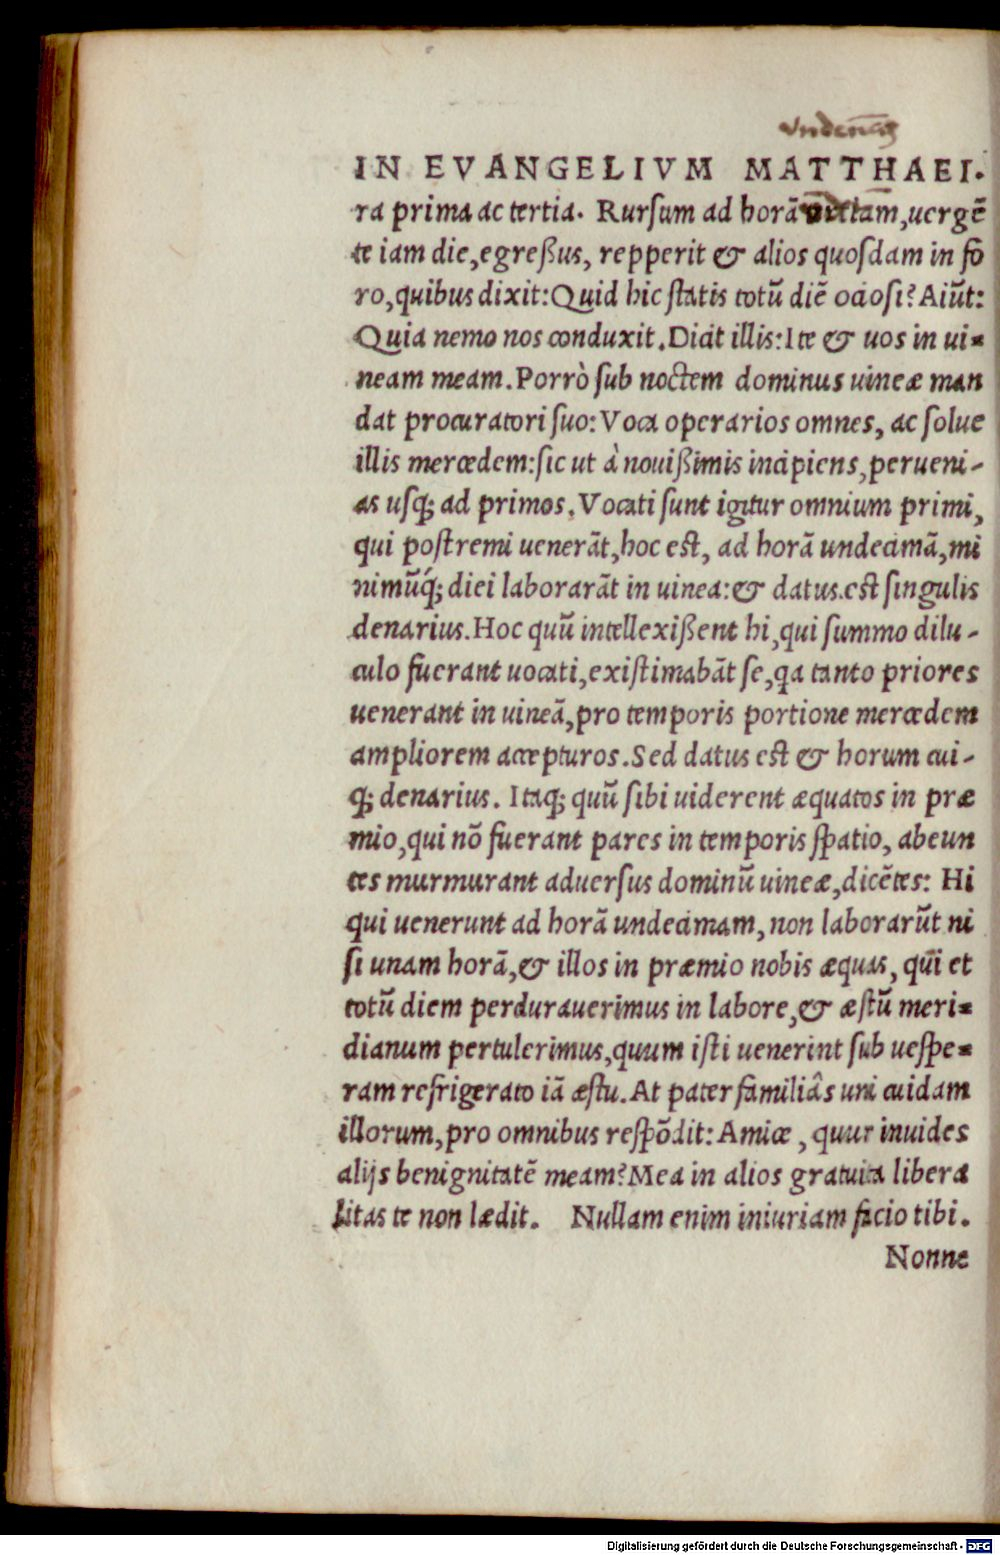 IN EVANGELIVM MATTHAEI.
ra prima ac tertia. Rursum ad horā ,uergē
te iam die,egreßus, repperit & alios quosdam in fo
ro,quibus dixit:Quid hic statis totū diē ociosi? Aiūt:
Quia nemo nos conduxit.Dicit illis:Ite & uos in ui=
neam meam.Porrò sub noctem dominus uineæ man
dat procuratori suo:Voca operarios omnes, ac solue
illis mercedem:sic ut à nouißimis incipiens,perueni-
as usq; ad primos. Vocati sunt igitur omnium primi,
qui postremi uenerāt,hoc est, ad horā undecimā,mi
nimūq́; diei laborarāt in uinea:& datus.est singulis
denarius.Hoc quū intellexißent hi,qui summo dilu-
culo fuerant uocati,existimabāt se,qa tanto priores
uenerant in uineā,pro temporis portione mercedem
ampliorem accepturos.Sed datus est & horum cui-
q; denarius. Itaq; quū sibi uiderent æquatos in præ
mio,qui nō fuerant pares in temporis spatio, abeun
tes murmurant aduersus dominū uineæ,dicētes: Hi
qui uenerunt ad horā undecimam, non laborarūt ni
si unam horā,& illos in præmio nobis æquas, qūi et
totū diem perdurauerimus in labore,& æstū meri=
dianum pertulerimus,quum isti uenerint sub uespe=
ram refrigerato iā æstu.At pater familiâs uni cuidam
illorum,pro omnibus respōdit:Amice, quur inuides
alijs benignitatē meam?Mea in alios gratuita libera
litas te non lædit. Nullam enim iniuriam facio tibi.
Nonne
Digitalisierung gefördert durch die Deutsche Forschungsgemeinschaft - DFG